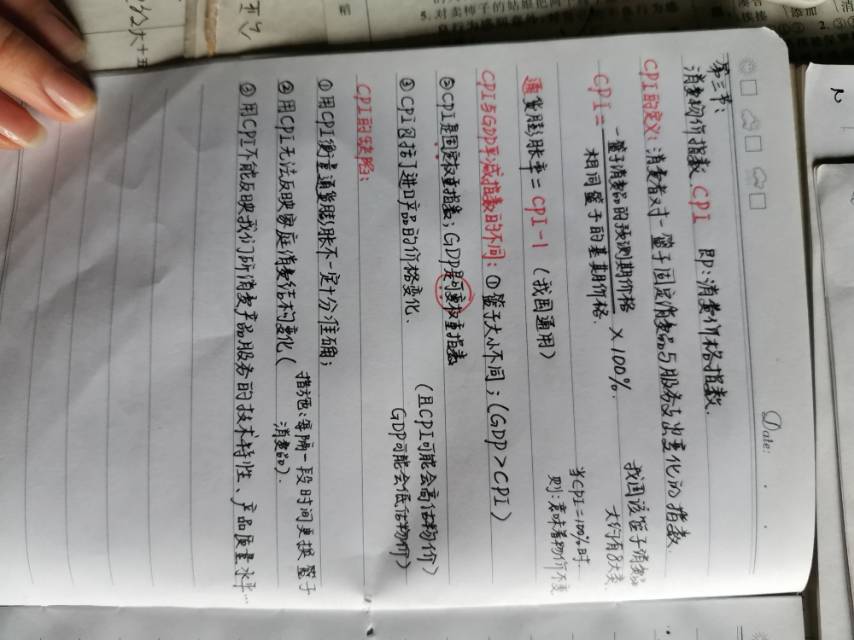 Date:
第三节:
消费物价指数 CPI 即:消费价格指数.
CPI的定义:消费者对一篮子固定消费品与服务支出变化的指数.
CPI = 一篮子消费品的预测期价格 / 相同篮子的基期价格. × 100%.
我国该篮子消费品
大约有8大类.
当CPI=100%时
则:意味着物价不变
通货膨胀率 = CPI-1 (我国通用)
CPI与GDP平减指数的不同:①篮子大小不同;(GDP>CPI)
②CPI是固定权重指数;GDP是可变权重指数
③CPI包括了进口产品的价格变化.
(且CPI可能会高估物价)
GDP可能会低估物价)
CPI的缺陷:
①用CPI衡量通货膨胀不一定十分准确;
②用CPI无法反映家庭消费结构变化(措施:每隔一段时间更换篮子
消费品).
③用CPI不能反映我们所消费产品服务的技术特性、产品质量水平...